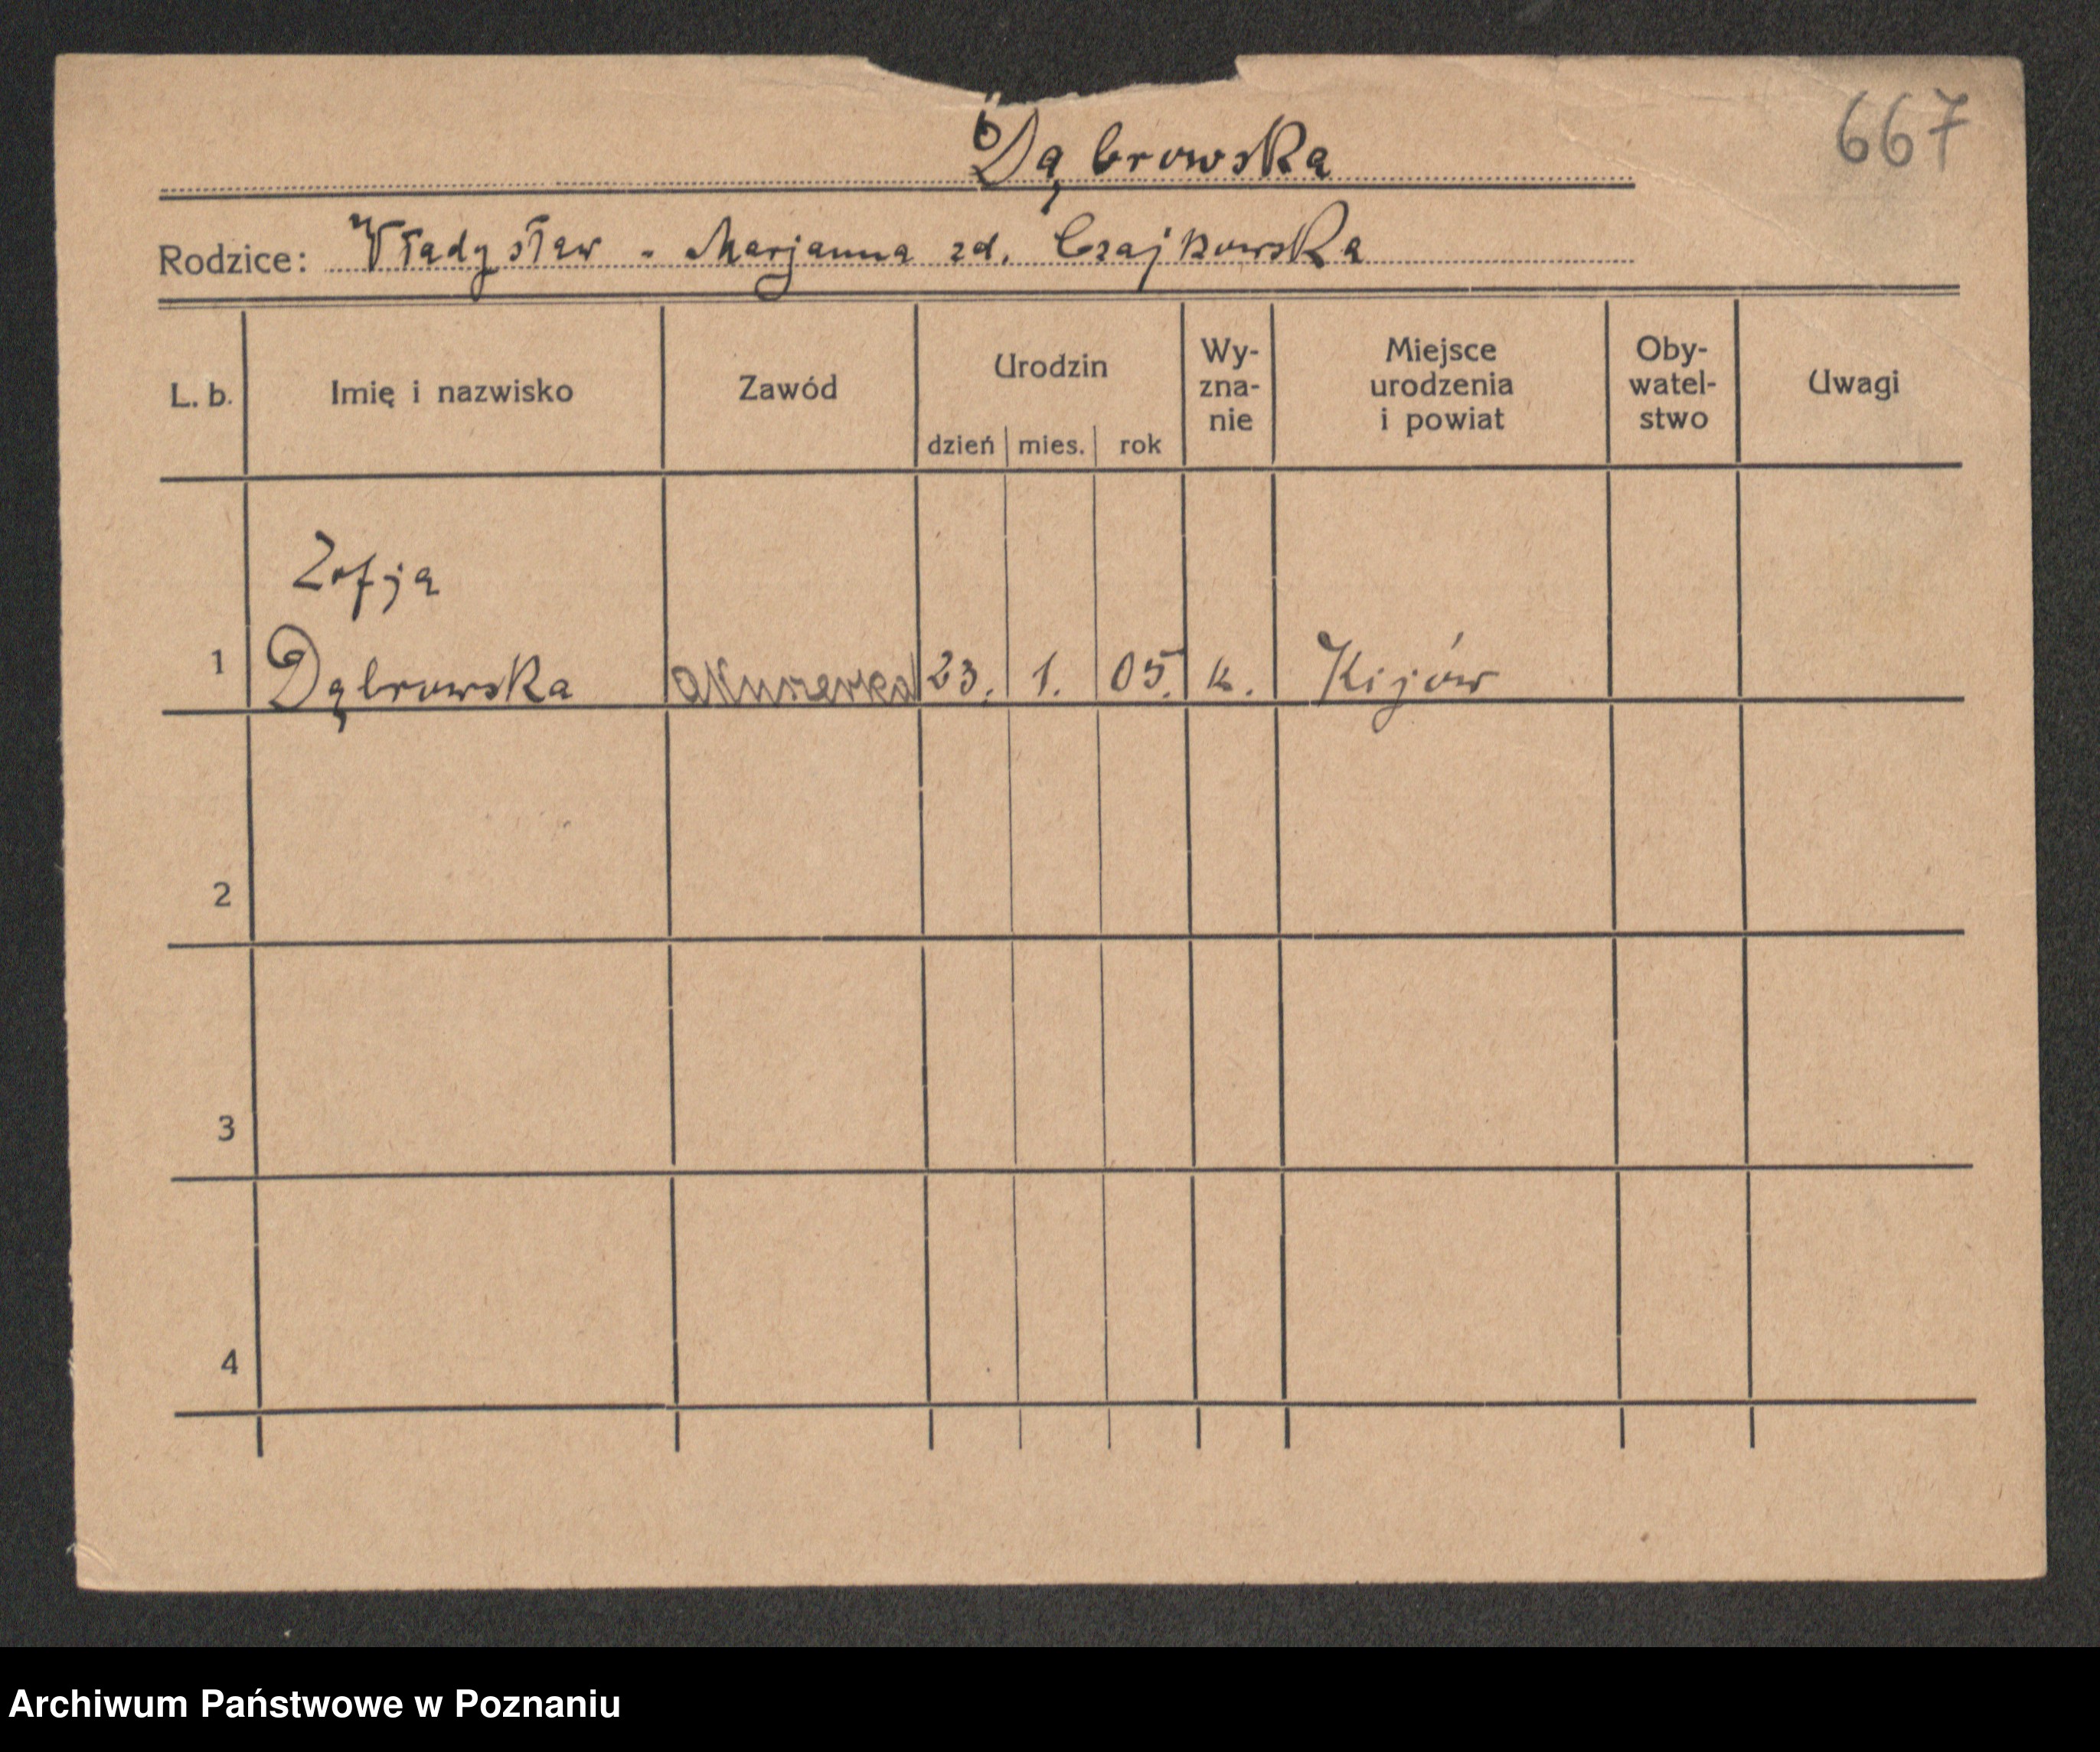 667
Dąbrowska
Rodzice: Władysław - Marjanna zd. Czajkowska
L. b. Imię i nazwisko Zawód Urodzin dzień mies. rok Wy-zna-nie Miejsce urodzenia i powiat Oby-watel-stwo Uwagi
Zofja
1 Dąbrowska akuszerka 23. 1. 05. k. Kijów
2
3
4
Archiwum Państwowe w Poznaniu